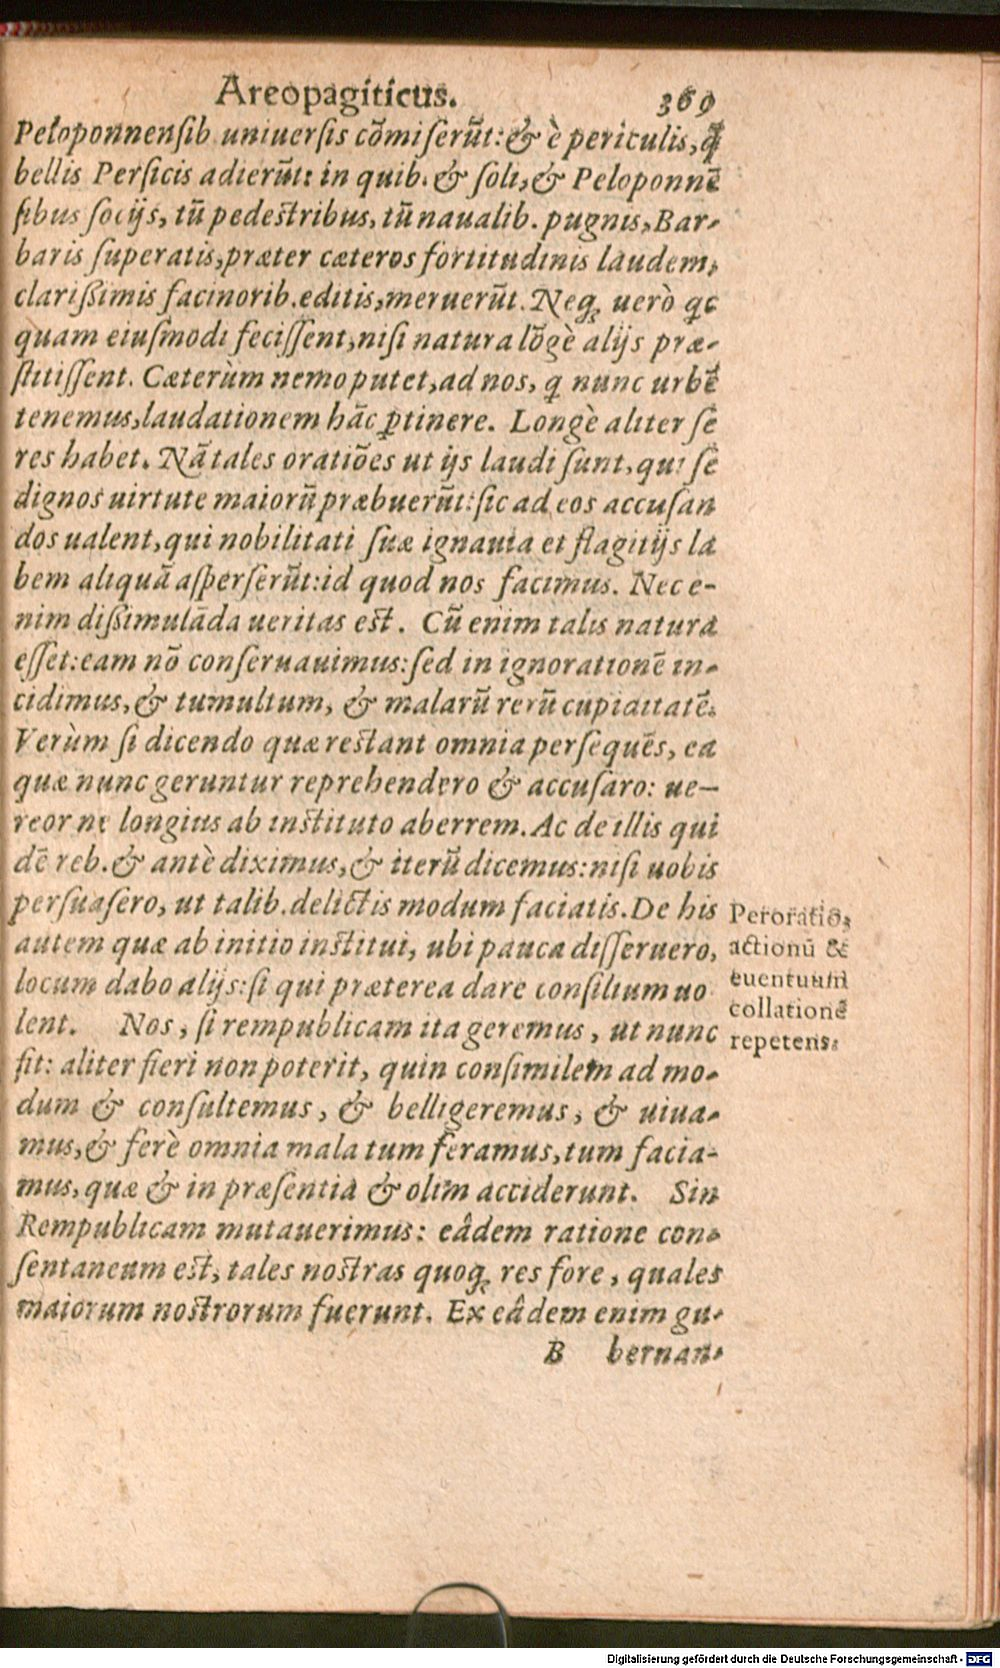 Areopagiticus. 369
Peloponnensib. uniuersis cōmiserūt: & è periculis, q̃
bellis Persicis adierūt: in quib. & soli, & Peloponnē
sibus socijs, tū pedestribus, tū naualib. pugnis, Bar-
baris superatis, præter cæteros fortitudinis laudem,
clarißimis facinorib. editis, meruerūt. Neq; uerò qc
quam eiusmodi fecissent, nisi natura lōgè alijs præ-
stitissent. Cæterùm nemo putet, ad nos, q nunc urbē
tenemus, laudationem hāc ꝑtinere. Longè aliter se
res habet. Nā tales oratiōes ut ijs laudi sunt, qui se
dignos uirtute maiorū præbuerūt: sic ad eos accusan
dos ualent, qui nobilitati suæ ignauia et flagitijs la
bem aliquā asperserūt: id quod nos facimus. Nec e-
nim dißimulāda ueritas est. Cū enim talis natura
esset: eam nō conseruauimus: sed in ignorationē in-
cidimus, & tumultum, & malarū rerū cupiditatē.
Verùm si dicendo quæ restant omnia persequēs, ea
quæ nunc geruntur reprehendero & accusaro: ue-
reor ne longius ab instituto aberrem. Ac de illis qui
dē reb. & antè diximus, & iterū dicemus: nisi uobis
persuasero, ut talib. delictis modum faciatis. De his
autem quæ ab initio institui, ubi pauca disseruero,
locum dabo alijs: si qui præterea dare consilium uo
lent. Nos, si rempublicam ita geremus, ut nunc
fit: aliter fieri non poterit, quin consimilem ad mo-
dum & consultemus, & belligeremus, & uiua-
mus, & ferè omnia mala tum feramus, tum facia-
mus, quæ & in præsentia & olim acciderunt. Sin
Rempublicam mutauerimus: eâdem ratione con-
sentaneum est, tales nostras quoq; res fore, quales
maiorum nostrorum fuerunt. Ex eâdem enim gu-
B bernan-
Peroratio,
actionū &
euentuum
collationē
repetens.
Digitalisierung gefördert durch die Deutsche Forschungsgemeinschaft - DFG